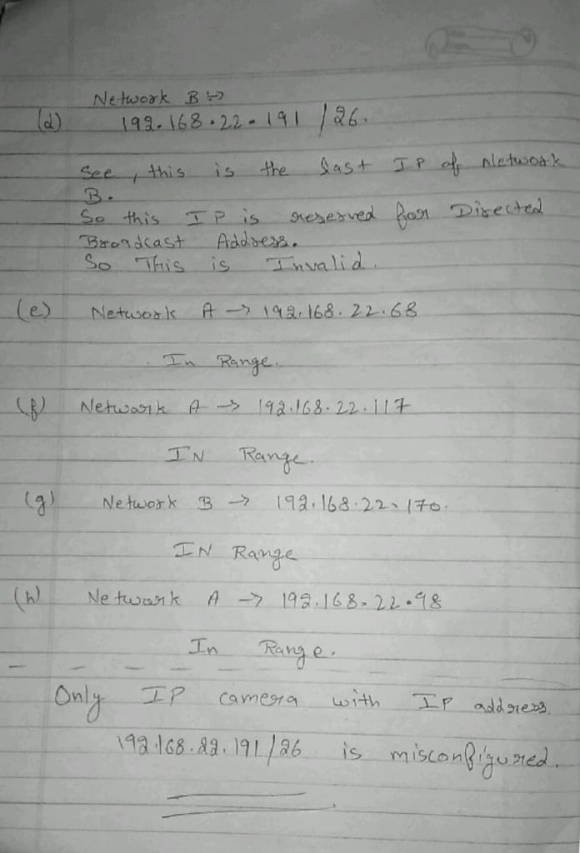 Network B ↦
(d) 192.168.22.191 /26.
See, this is the last IP of Network
B.
So this IP is reserved for Directed
Broadcast Address.
So This is Invalid.
(e) Network A → 192.168.22.68
In Range.
(f) Network A → 192.168.22.117
IN Range.
(g) Network B → 192.168.22.170.
IN Range
(h) Network A → 192.168.22.98
In Range.
Only IP camera with IP address
192.168.22.191/26 is misconfigured.